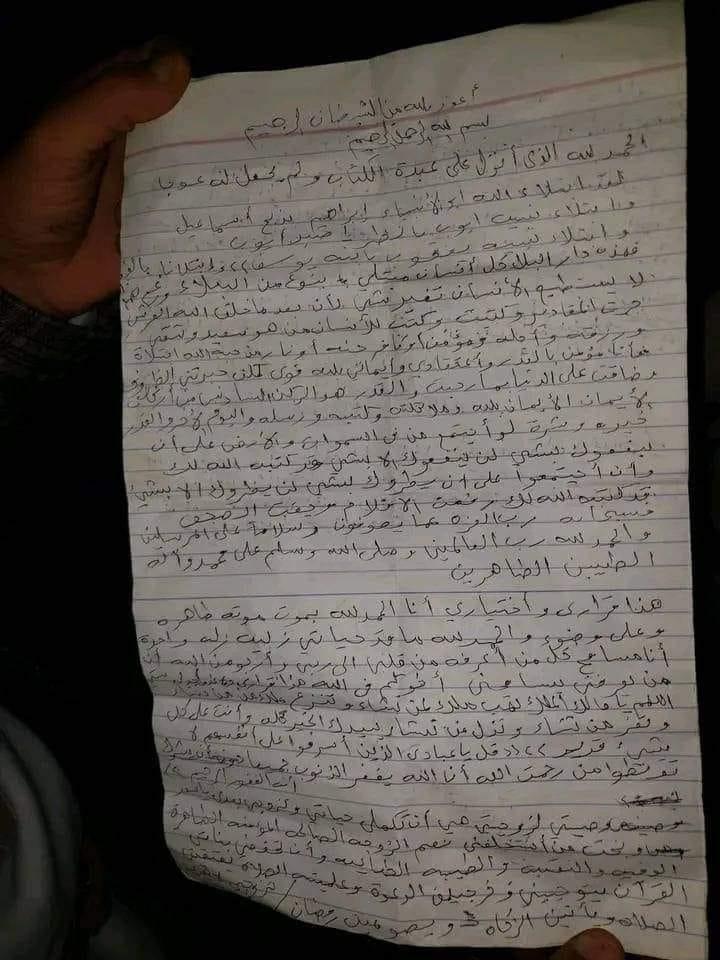 أعوذ بالله من الشيطان الرجيم
بسم الله الرحمن الرحيم
الحمد لله الذي أنزل على عبدة الكتاب ولم يجعل له عوجا
لقد ابتلاء الله الأنبياء إبراهيم بذبح أسماعيل
وابتلاء نبيه أيوب يا صبر أيوب
وابتلاء نبيه يعقوب بأبنه يوسف
فهذه دار البلا كل أنسان مبتلى بنوع من البلاء
لا يستطيع الأنسان تغير شي لأن بعد ما خلق الله العرش
جرت المقادير وكتبت وكتب للأنسان من هو سعيد وشقي
ورزقة وأجله ومؤمن أو كافر جنه أو نار
فأنا مؤمن بالقدر وأعتقادي وأيماني بالله قوى لكن جبرتني الظروف
وضاقت على الدنيا بما رحبت والقدر هو الركن السادس من أركان
الأيمان الأيمان بالله وملائكته وكتبه ورسله واليوم الأخر والقدر
خيره وشرة لو أجتمع من في السموات والأرض على أن
ينفعوك بشي لن ينفعوك الا بشي قد كتبه الله لك
وأن أجتمعوا على أن يظروك بشي لن يظروك الا بشي
قد كتبه الله لك رفعت الاقلام وجفت الصحف
سبحانه رب العزه عما يصفون وسلاما على المرسلين
والحمد لله رب العالمين وصلى الله وسلم على محمد وآله
الطيبين الطاهرين
هذا قراري وأختياري أنا الحمد لله بموت موته طاهره
وعلى وضوء والحمد لله ما قد حياتي زليت زله واحدة
أنا مسامح كل من أعرفه من قلبي الى ربي وأرجو من الله أن
من يعرفني يسامحني أخوكم في الله هذا قراري
اللهم يا مالك الملك تهب ملك لمن تشاء وتنزع ملك من من تشاء
وتعز من تشاء وتذل من تشاء بيدك الخير كله وأنت على كل
شيء قدير قل يا عبادي الذين أسرفوا على أنفسهم لا
تقنطوا من رحمت الله أنا الله يغفر الذنوب جميعا
انه الغفور الرحيم
وصيتي لزوجتي هي أن تكملي حياتي
من أستخلفني نعم الزوجه الصالحه المؤمنه الطاهرة
الوفيه والنقية والطيبه الحنانيه وأن تحفظي بناتي
القرآن
الصلاه وتأتين الزكاه ويصومين رمضان